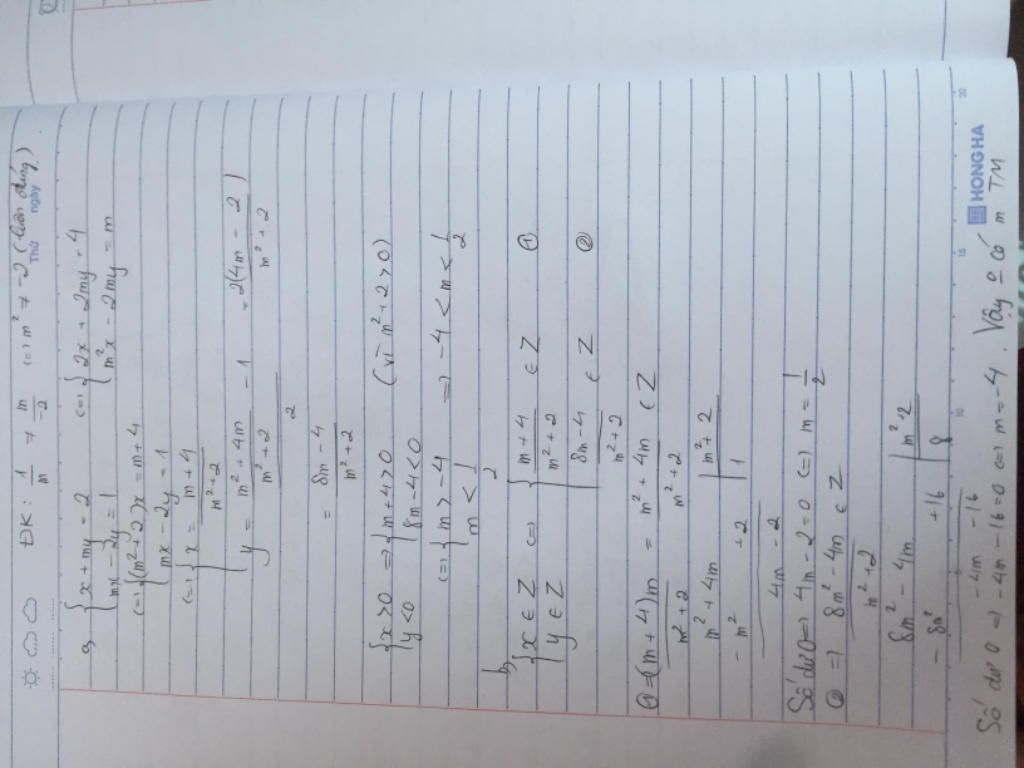 Thứ
ngày
ĐK: 1/m ≠ m/-2 (=) m² ≠ -2 (luôn đúng)
a, { x + my = 2 (=) { 2x + 2my = 4
mx - 2y = 1 m²x - 2my = m
(=) { (m² + 2)x = m + 4
mx - 2y = 1
(=) { x = m + 4 / m² + 2
y = m² + 4m / m² + 2 - 1 / 2 = 2(4m - 2) / m² + 2
= 8m - 4 / m² + 2
{ x > 0 => { m + 4 > 0 (vì m² + 2 > 0)
y < 0 8m - 4 < 0
(=) { m > -4 => -4 < m < 1/2
m < 1/2
b, { x ∈ Z (=) { m + 4 / m² + 2 ∈ Z ①
y ∈ Z 8m - 4 / m² + 2 ∈ Z ②
① => (m + 4)m / m² + 2 = m² + 4m / m² + 2 ∈ Z
m² + 4m | m² + 2
- m² + 2 | 1
4m - 2
Số dư 0 => 4m - 2 = 0 (=) m = 1/2
② => 8m² - 4m / m² + 2 ∈ Z
8m² - 4m | m² + 2
- 8m² + 16 | 8
-4m - 16
Số dư 0 => -4m - 16 = 0 (=) m = -4. Vậy o có m TM
10
15
20
HONG HA